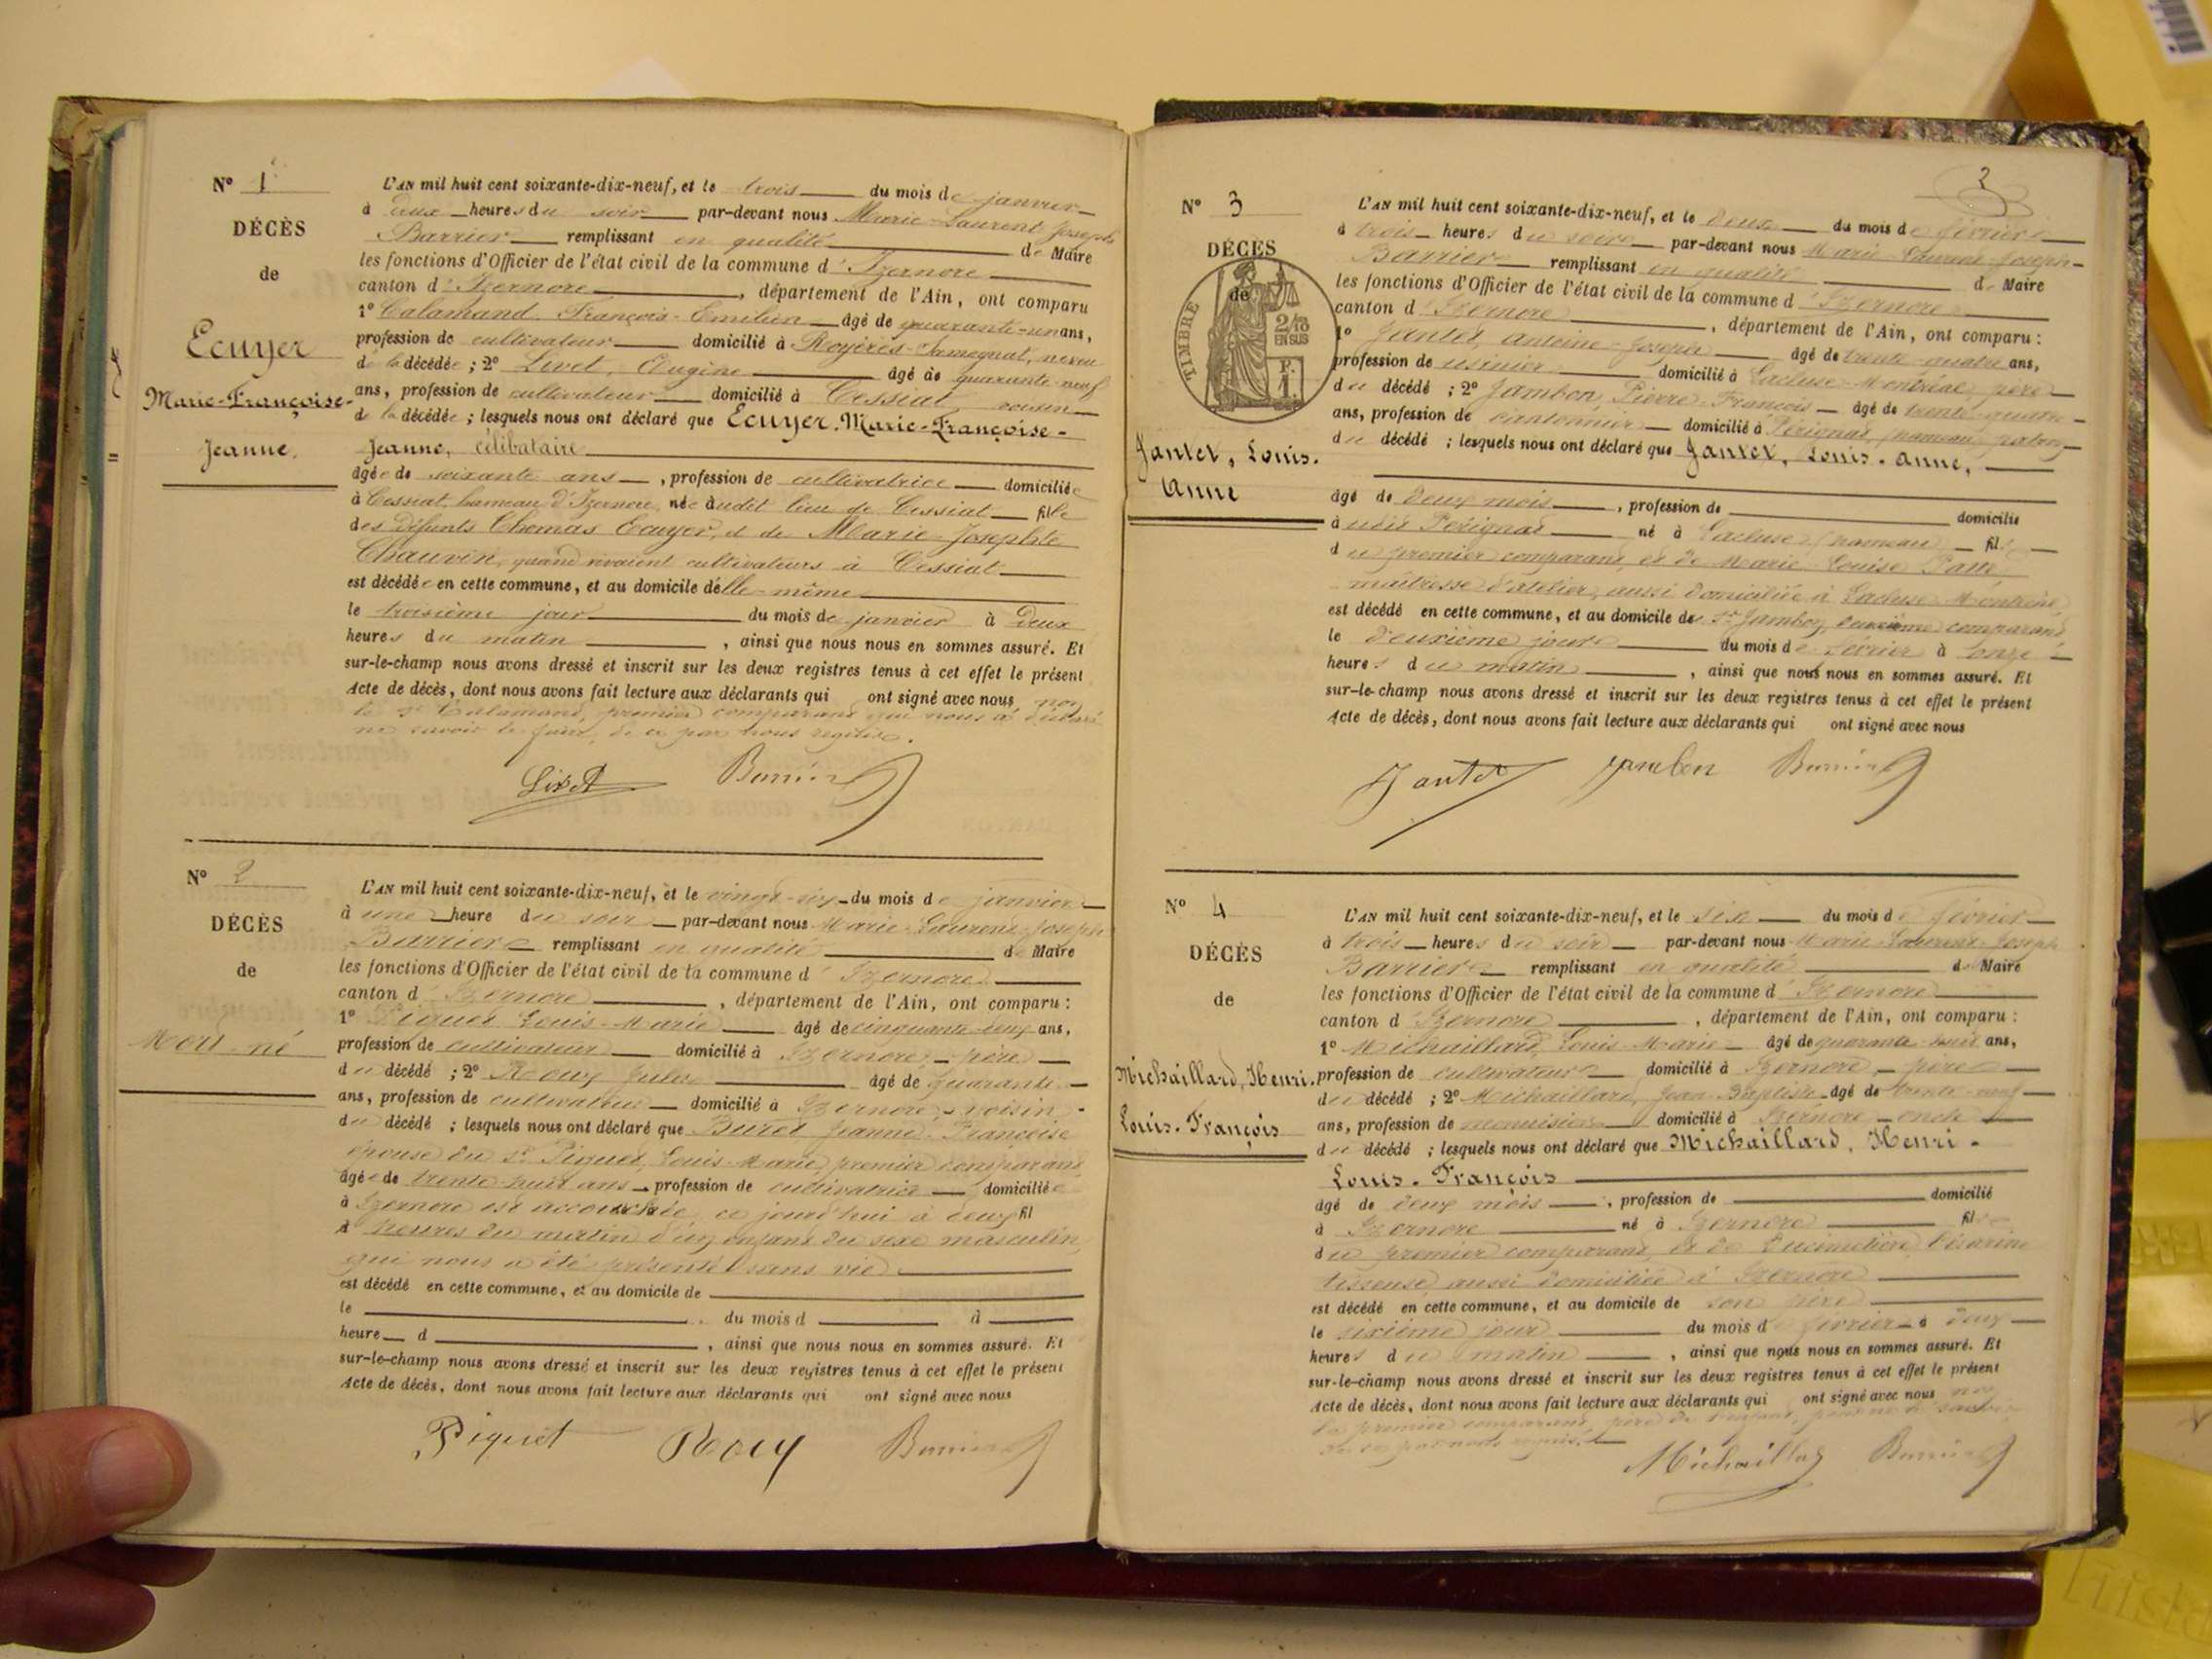 N° 1
DÉCÈS
de
Ecuyer
Marie-Françoise-
Jeanne.
L'AN mil huit cent soixante-dix-neuf, et le trois du mois de janvier
à deux heures du soir par-devant nous Marie-Laurent Joseph
Barrier remplissant en qualité de Maire
les fonctions d'Officier de l'état civil de la commune d'Izernore
canton d'Izernore, département de l'Ain, ont comparu
1° Calamand François-Emilien âgé de quarante-un ans,
profession de cultivateur domicilié à Royères-Samognat, neveu
de la décédée ; 2° Livet, Eugène âgé de quarante-neuf
ans, profession de cultivateur domicilié à Cessiat cousin
de la décédée ; lesquels nous ont déclaré que Ecuyer. Marie-Françoise-
Jeanne, célibataire
âgée de soixante ans, profession de cultivatrice domiciliée
à Cessiat, hameau d'Izernore, née audit lieu de Cessiat fille
des défunts Thomas Ecuyer, et de Marie-Josephte
Chauvin, quand vivaient cultivateurs à Cessiat
est décédée en cette commune, et au domicile d'elle-même
le troisième jour du mois de janvier à deux
heures du matin, ainsi que nous nous en sommes assuré. Et
sur-le-champ nous avons dressé et inscrit sur les deux registres tenus à cet effet le présent
Acte de décès, dont nous avons fait lecture aux déclarants qui ont signé avec nous non
le Sr Calamand, premier comparant qui nous a déclaré
ne savoir le faire, de ce par nous requis.
Livet Barrier
N° 2
DÉCÈS
de
Mort-né
L'AN mil huit cent soixante-dix-neuf, et le vingt-six du mois de janvier
à une heure du soir par-devant nous Marie-Laurent-Joseph
Barrier remplissant en qualité de Maire
les fonctions d'Officier de l'état civil de la commune d'Izernore
canton d'Izernore, département de l'Ain, ont comparu :
1° Piquet Louis-Marie âgé de cinquante-deux ans,
profession de cultivateur domicilié à Izernore, père
du décédé ; 2° Rouy Jules âgé de quarante
ans, profession de cultivateur domicilié à Izernore, voisin
du décédé ; lesquels nous ont déclaré que Buret Jeanne-Françoise
épouse du Sr Piquet, Louis-Marie, premier comparant
âgée de trente-huit ans profession de cultivatrice domiciliée
à Izernore est accouchée ce jourd'hui à deux fil
d heures du matin d'un enfant du sexe masculin,
qui nous a été présenté sans vie
est décédé en cette commune, et au domicile de
le du mois d à
heure d, ainsi que nous nous en sommes assuré. Et
sur-le-champ nous avons dressé et inscrit sur les deux registres tenus à cet effet le présent
Acte de décès, dont nous avons fait lecture aux déclarants qui ont signé avec nous
Piquet Rouy Barrier
3
N° 3
DÉCÈS
de
TIMBRE
2/10
EN SUS
P.
1.
Jantet, Louis.
Anne
L'AN mil huit cent soixante-dix-neuf, et le deux du mois de février
à trois heures du soir par-devant nous Marie-Laurent-Joseph
Barrier remplissant en qualité de Maire
les fonctions d'Officier de l'état civil de la commune d'Izernore
canton d'Izernore, département de l'Ain, ont comparu :
1° Jantet, Antoine-Joseph âgé de trente-quatre ans,
profession de usinier domicilié à Lacluse-Montréal, père
du décédé ; 2° Jambon, Pierre-François âgé de trente-quatre
ans, profession de cantonnier domicilié à Perignat, hameau,
du décédé ; lesquels nous ont déclaré que Jantet, Louis-Anne,
âgé de deux mois, profession de domicilié
à Perignat né à Lacluse (hameau) fils
du premier comparant, et de Marie-Louise
maîtresse d'atelier, aussi domiciliée à Lacluse-Montréal
est décédé en cette commune, et au domicile de Sr Jambon, deuxième comparant
le deuxième jour du mois de février à onze
heures du matin, ainsi que nous nous en sommes assuré. Et
sur-le-champ nous avons dressé et inscrit sur les deux registres tenus à cet effet le présent
Acte de décès, dont nous avons fait lecture aux déclarants qui ont signé avec nous
Jantet Jambon Barrier
N° 4
DÉCÈS
de
Michaillard, Henri.
Louis-François
L'AN mil huit cent soixante-dix-neuf, et le six du mois de février
à trois heures du soir par-devant nous Marie-Laurent-Joseph
Barrier remplissant en qualité de Maire
les fonctions d'Officier de l'état civil de la commune d'Izernore
canton d'Izernore, département de l'Ain, ont comparu :
1° Michaillard, Louis-Marie âgé de quarante-huit ans,
profession de cultivateur domicilié à Izernore, père
du décédé ; 2° Michaillard, Jean-Baptiste âgé de trente-neuf
ans, profession de menuisier domicilié à Izernore oncle
du décédé ; lesquels nous ont déclaré que Michaillard, Henri-
Louis-François
âgé de deux mois, profession de domicilié
à Izernore né à Izernore fils
du premier comparant et de Ducimetière
tisseuse, aussi domiciliée à Izernore
est décédé en cette commune, et au domicile de son père
le sixième jour du mois de février à deux
heures du matin, ainsi que nous nous en sommes assuré. Et
sur-le-champ nous avons dressé et inscrit sur les deux registres tenus à cet effet le présent
Acte de décès, dont nous avons fait lecture aux déclarants qui ont signé avec nous non
le premier comparant, père de l'enfant,
de ce par nous requis.
Michaillard Barrier